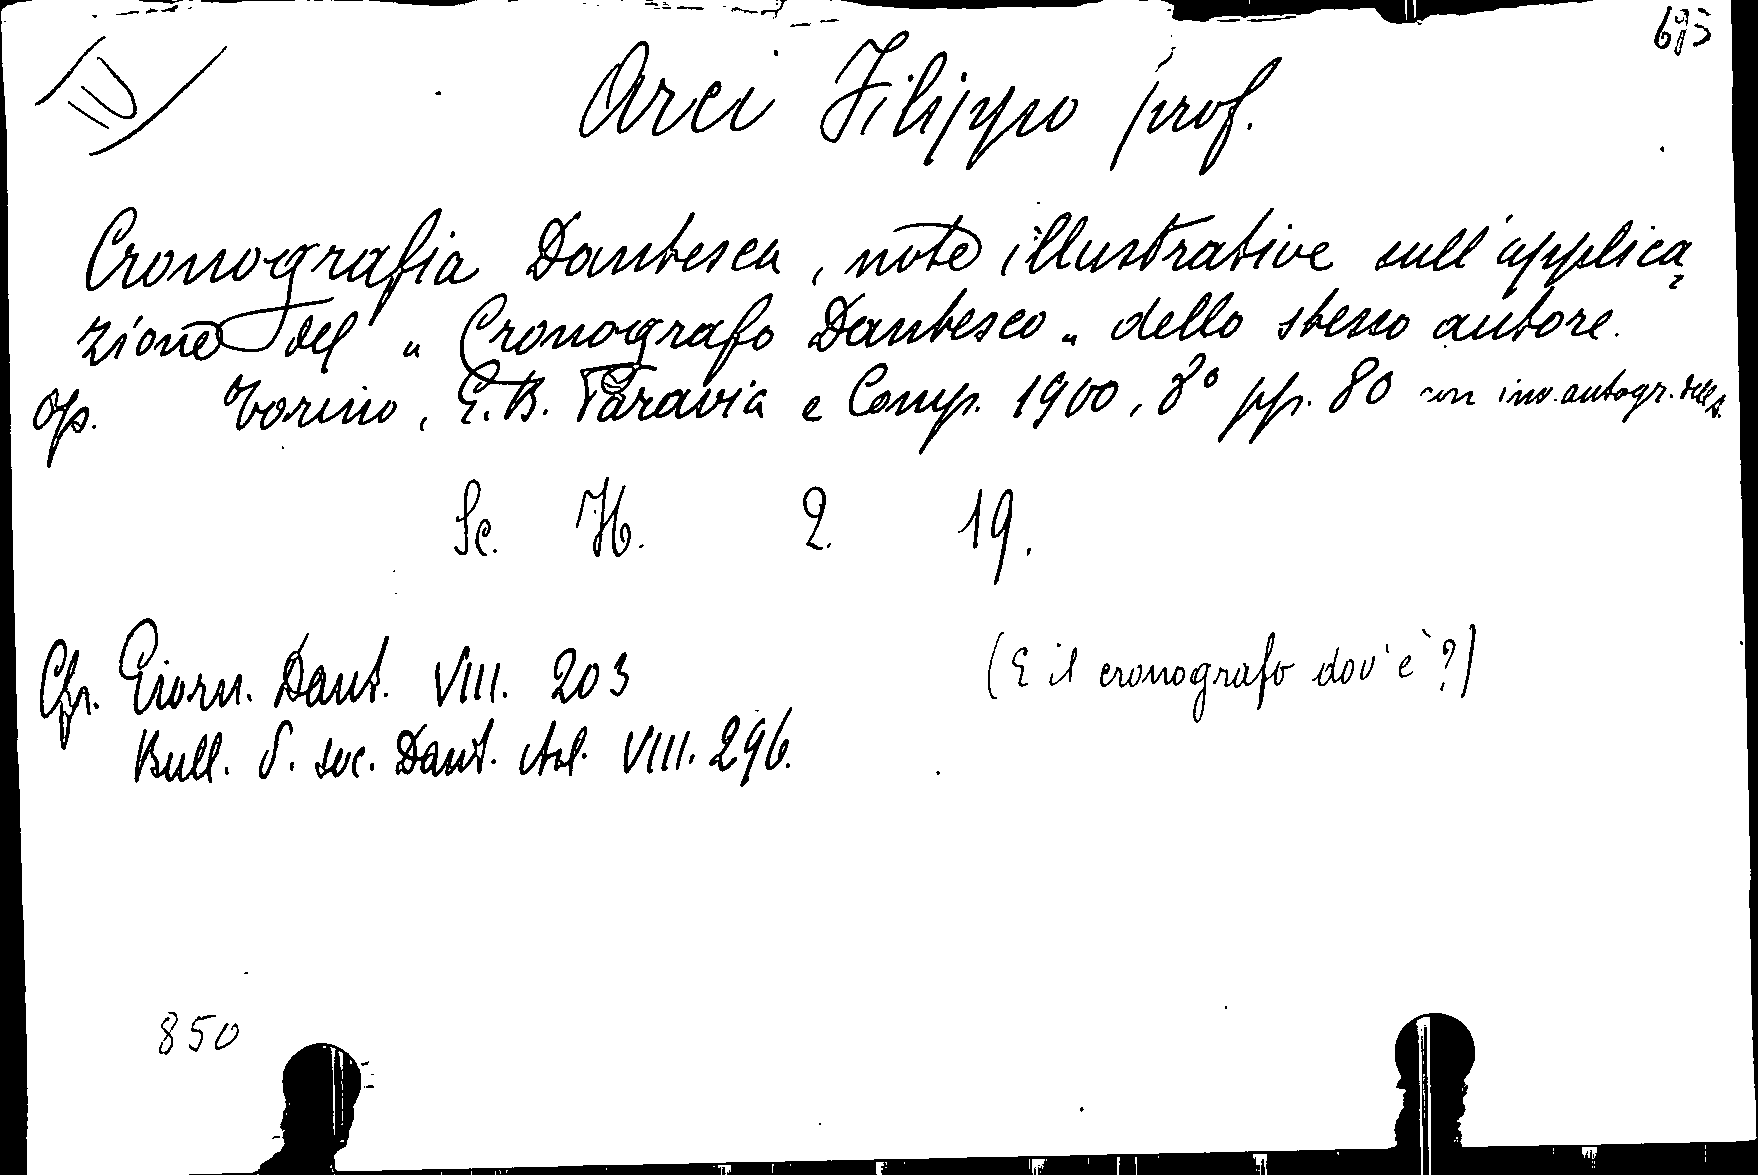 693
IV
Arci Filippo prof.
Cronografia Dantesca, note illustrative sull'applica
zione del „ Cronografo Dantesco „ dello stesso autore.
op. Torino, G.B. Paravia e Comp. 1900, 8° pp. 80 con inv. autogr. dell'A.
Sc. H. 2. 19.
Cfr. Giorn. Dant. VIII. 203
(E il cronografo dov'è?)
Bull. d. soc. Dant. ital. VIII. 296.
850